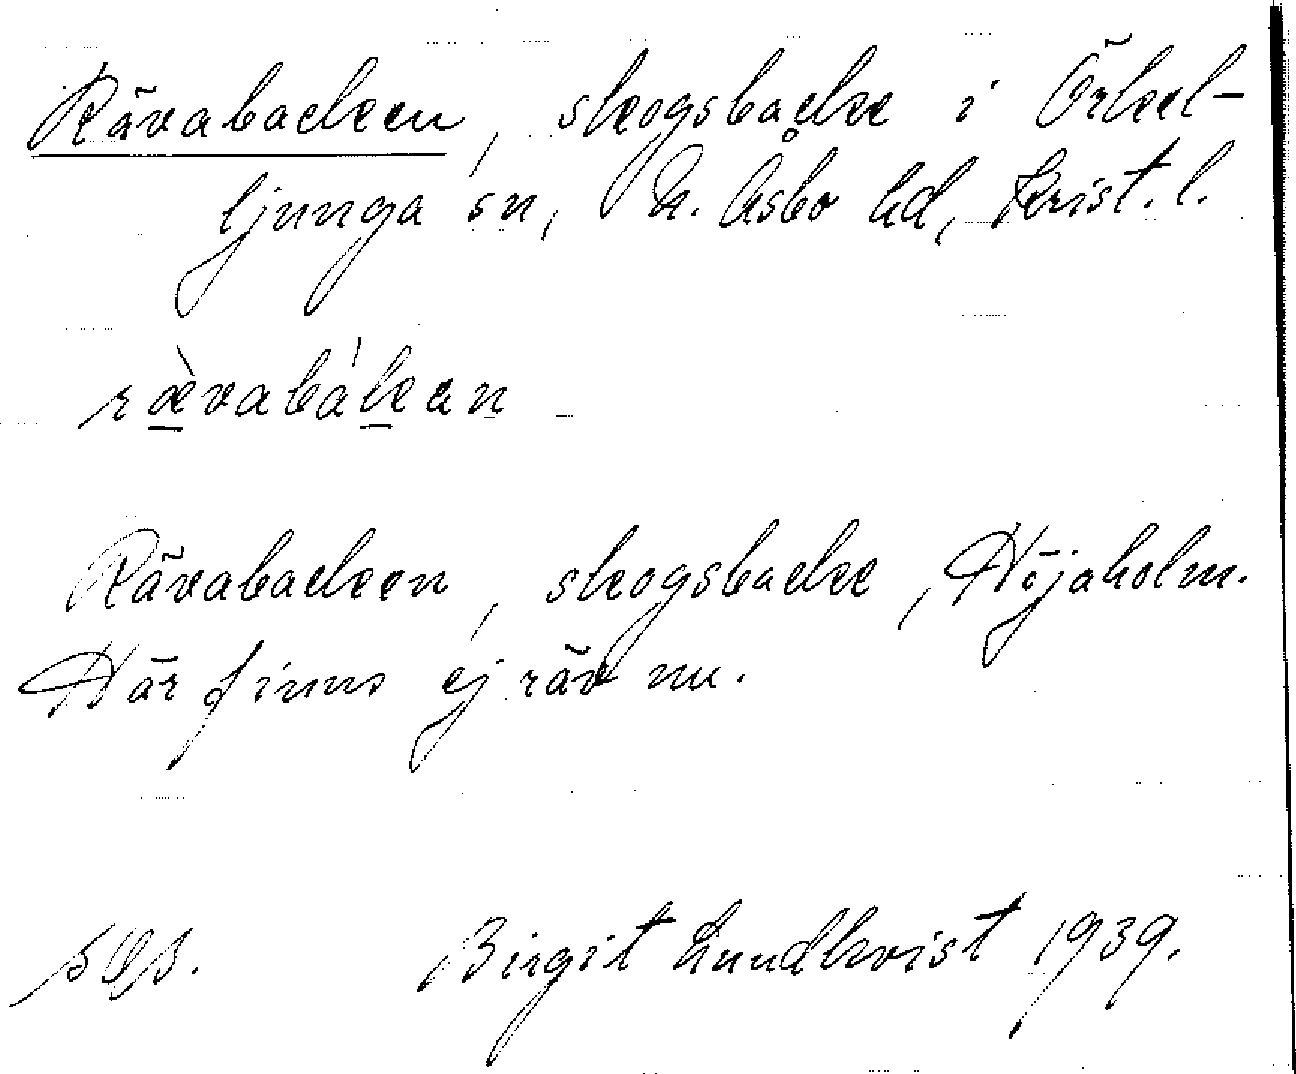 Rävabacken, skogsbacke i Örkel-
ljunga sn, N. Åsbo hd, Krist. l.
rævabákan
Rävabacken, skogsbacke, Höjaholm.
Här finns ej räv nu.
Birgit Lundkvist 1939.